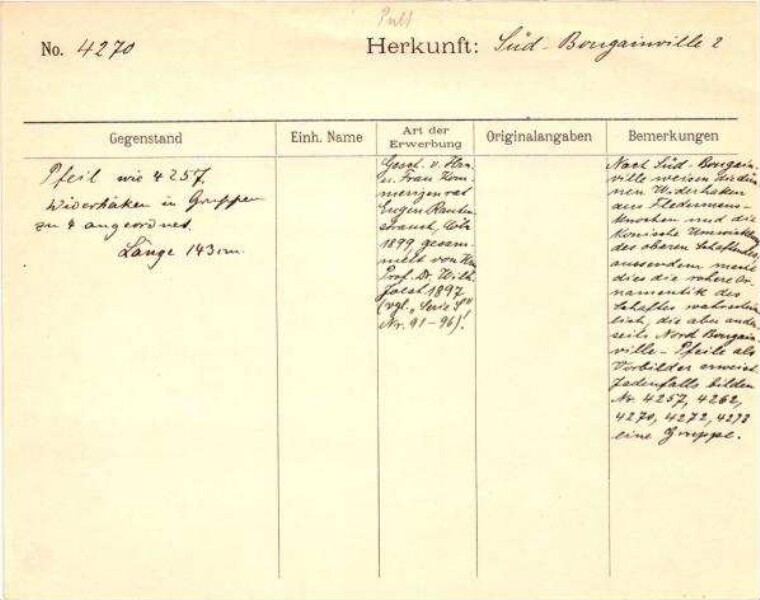 Pult
No. 4270 Herkunft: Süd-Bougainville 2
Gegenstand
Einh. Name
Art der
Erwerbung
Originalangaben
Bemerkungen
Pfeil wie 4257.
Widerhaken in Gruppen
zu 4 angeordnet.
Länge 143 cm.
Gesch. v. Hrn.
u. Frau Kom-
merzienrat
Eugen Rauten-
strauch, Cöln
1899, gesam-
melt von Hrn
Prof. Dr. Wilh.
Joest 1897
(vgl. „Serie S"
Nr. 91-96)!
Nach Süd-Bougain-
ville weisen die dün-
nen Widerhaken
aus Fledermaus-
knochen und die
konische Umwicklung
des oberen Schaftendes,
ausserdem macht
dies die rohere Or-
namentik des
Schaftes wahrschein-
lich, die aber ander-
seits Nord Bougain-
ville-Pfeile als
Vorbilder erweist.
Jedenfalls bilden
Nr. 4257, 4262,
4270, 4272,
eine Gruppe.